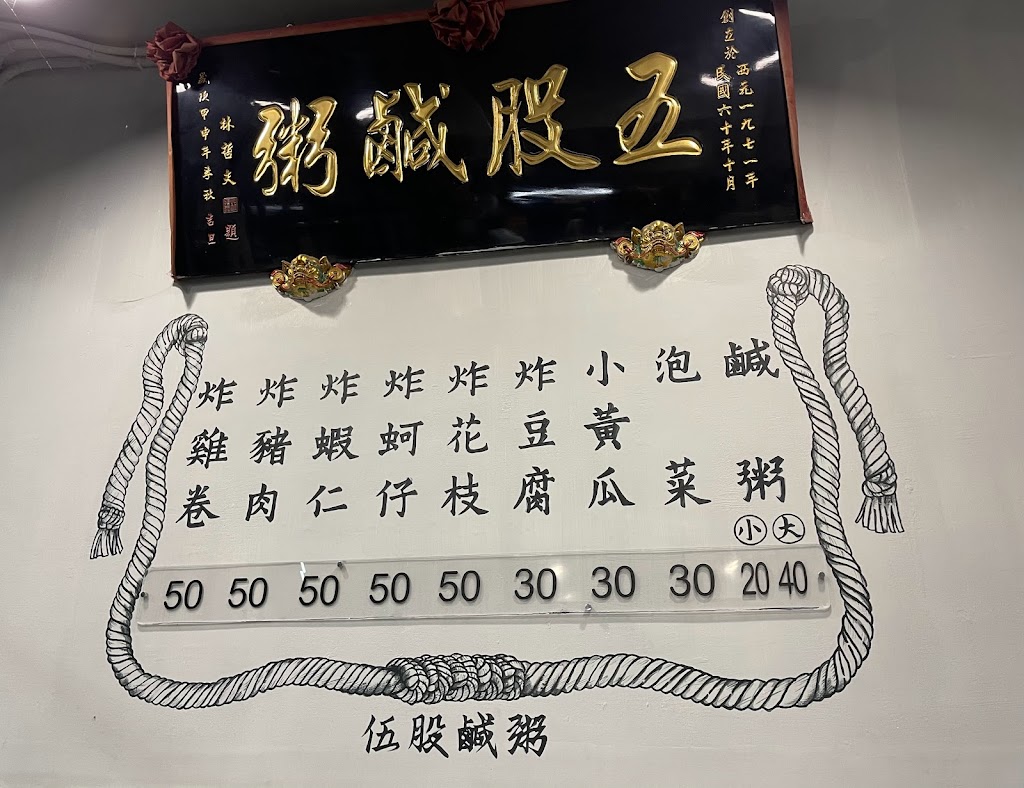 創立於
西元一九七一年
民國六十年十月
五股鹹粥
林哲夫 題
歲次甲申年 秋 吉旦
鹹粥 小 大 20 40
泡菜 30
小黃瓜 30
炸豆腐 30
炸花枝 50
炸蚵仔 50
炸蝦仁 50
炸豬肉 50
炸雞卷 50
伍股鹹粥